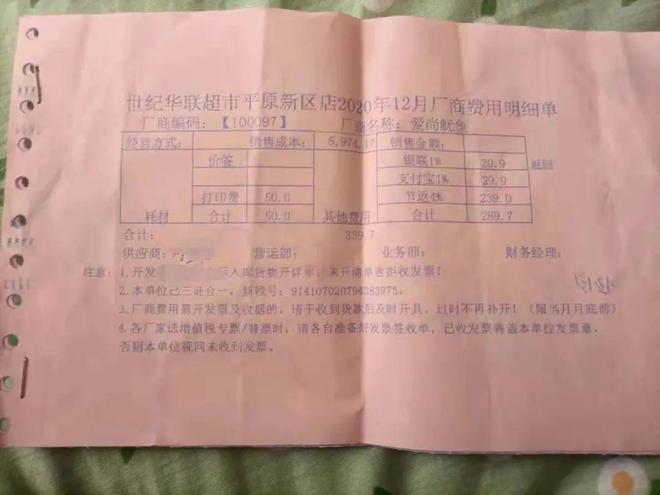 世纪华联超市平原新区店2020年12月厂商费用明细单
厂商编码：【100097】 厂商名称：爱尚鱿鱼
经营方式： 销售成本： 5,974.17 销售金额：
价签 银联1% 20.9 返回
支付宝1% 29.9
打印费 50.0 节返4% 239.0
耗材 合计 50.0 其他费用 合计 289.7
合计： 339.7
供应商： 营运部： 业务部： 财务经理：
注意：1.开发 入库货物开详单，未开清单者拒收发票！
2.本单位已三证合一，新税号：914107020794383975。
3.厂商费用需开发票及收据的，请于收到货款后及时开具，以时不再补开！（限当月月底前）
4.各厂家送增值税专票/普票时，请各自准备好发票签收单，已收发票将盖本单位发票章，
否则本单位视同未收到发票。